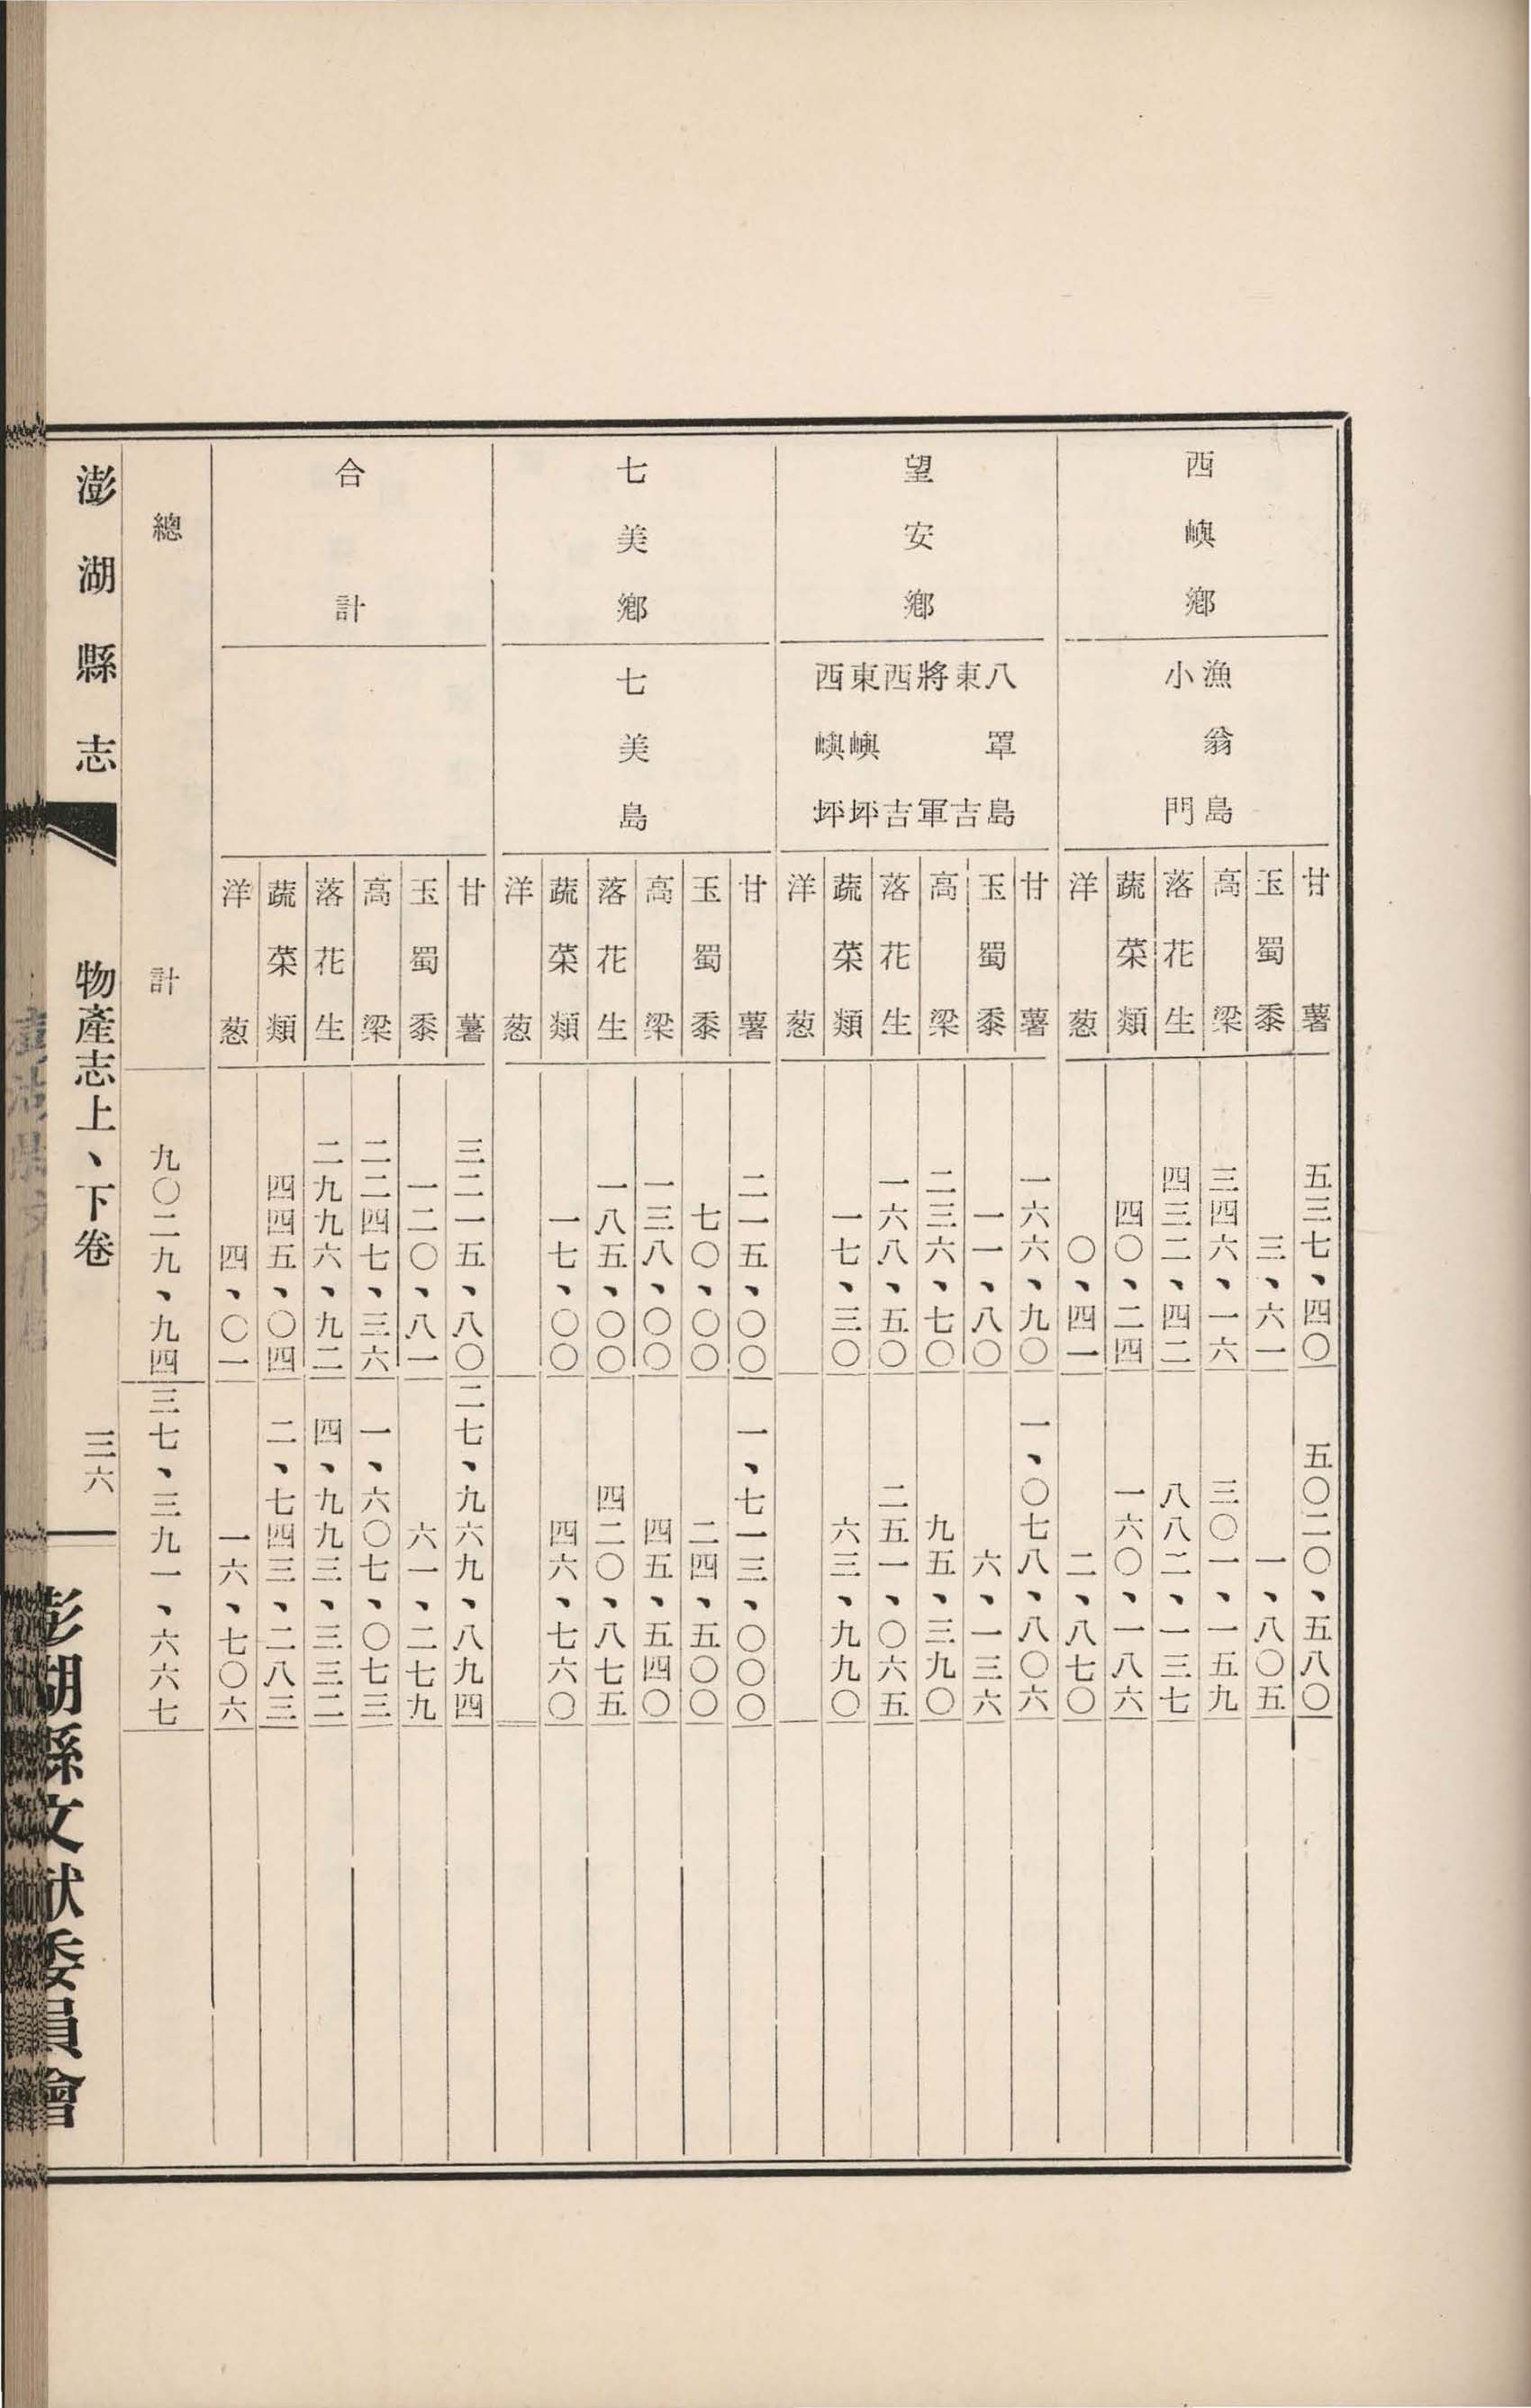 西嶼鄉
漁翁島
小門
甘薯 五三七、四〇 五〇二〇、五八〇
玉蜀黍 三、六一 一、八〇五
高梁 三四六、一六 三〇一、一五九
落花生 四三二、四二 八八二、一三七
蔬菜類 四〇、二四 一六〇、一八六
洋葱 〇、四一 二、八七〇
望安鄉
八罩島
東吉
將軍
西吉
東嶼坪
西嶼坪
甘薯 一六六、九〇 一、〇七八、八〇六
玉蜀黍 一一、八〇 六、一三六
高梁 二三六、七〇 九五、三九〇
落花生 一六八、五〇 二五一、〇六五
蔬菜類 一七、三〇 六三、九九〇
洋葱
七美鄉
七美島
甘薯 二一五、〇〇 一、七一三、〇〇〇
玉蜀黍 七〇、〇〇 二四、五〇〇
高梁 一三八、〇〇 四五、五四〇
落花生 一八五、〇〇 四二〇、八七五
蔬菜類 一七、〇〇 四六、七六〇
洋葱
合計
甘薯 三二一五、八〇 二七、九六九、八九四
玉蜀黍 一二〇、八一 六一、二七九
高梁 二二四七、三六 一、六〇七、〇七三
落花生 二九九六、九二 四、九九三、三三二
蔬菜類 四四五、〇四 二、七四三、二八三
洋葱 四、〇一 一六、七〇六
總計 九〇二九、九四 三七、三九一、六六七
澎湖縣志 物產志上、下卷 三六
澎湖縣文献委員會